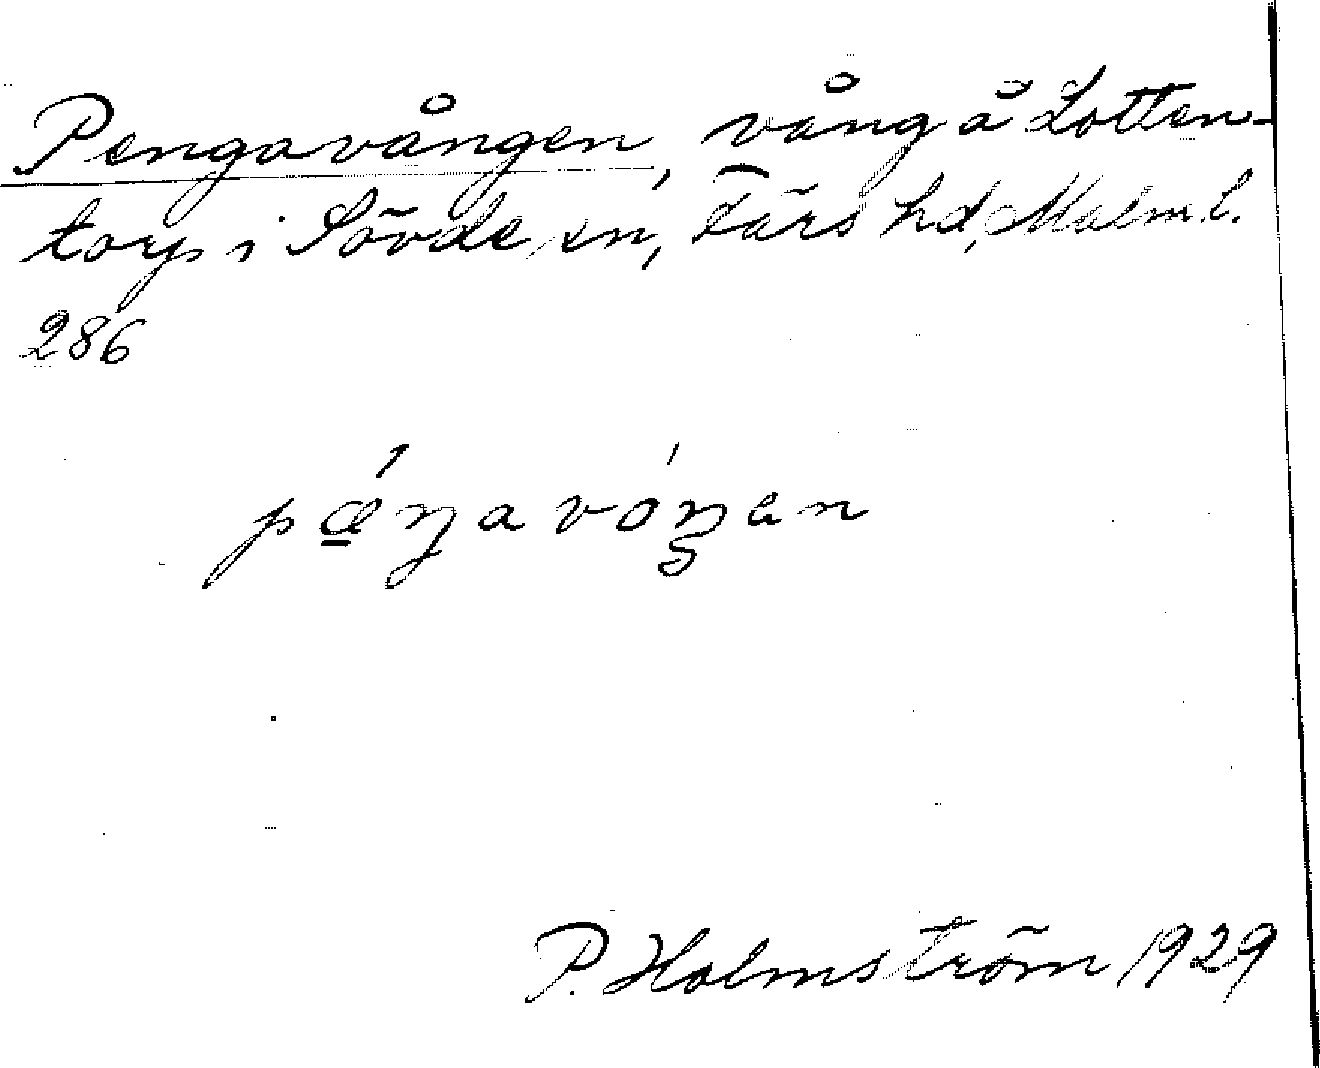 Pengavången, vång å Lotten-
torp i Sövde sn, Färs hd, Malm. l.
286
pǽ̱ŋavóŋen
P. Holmström 1929